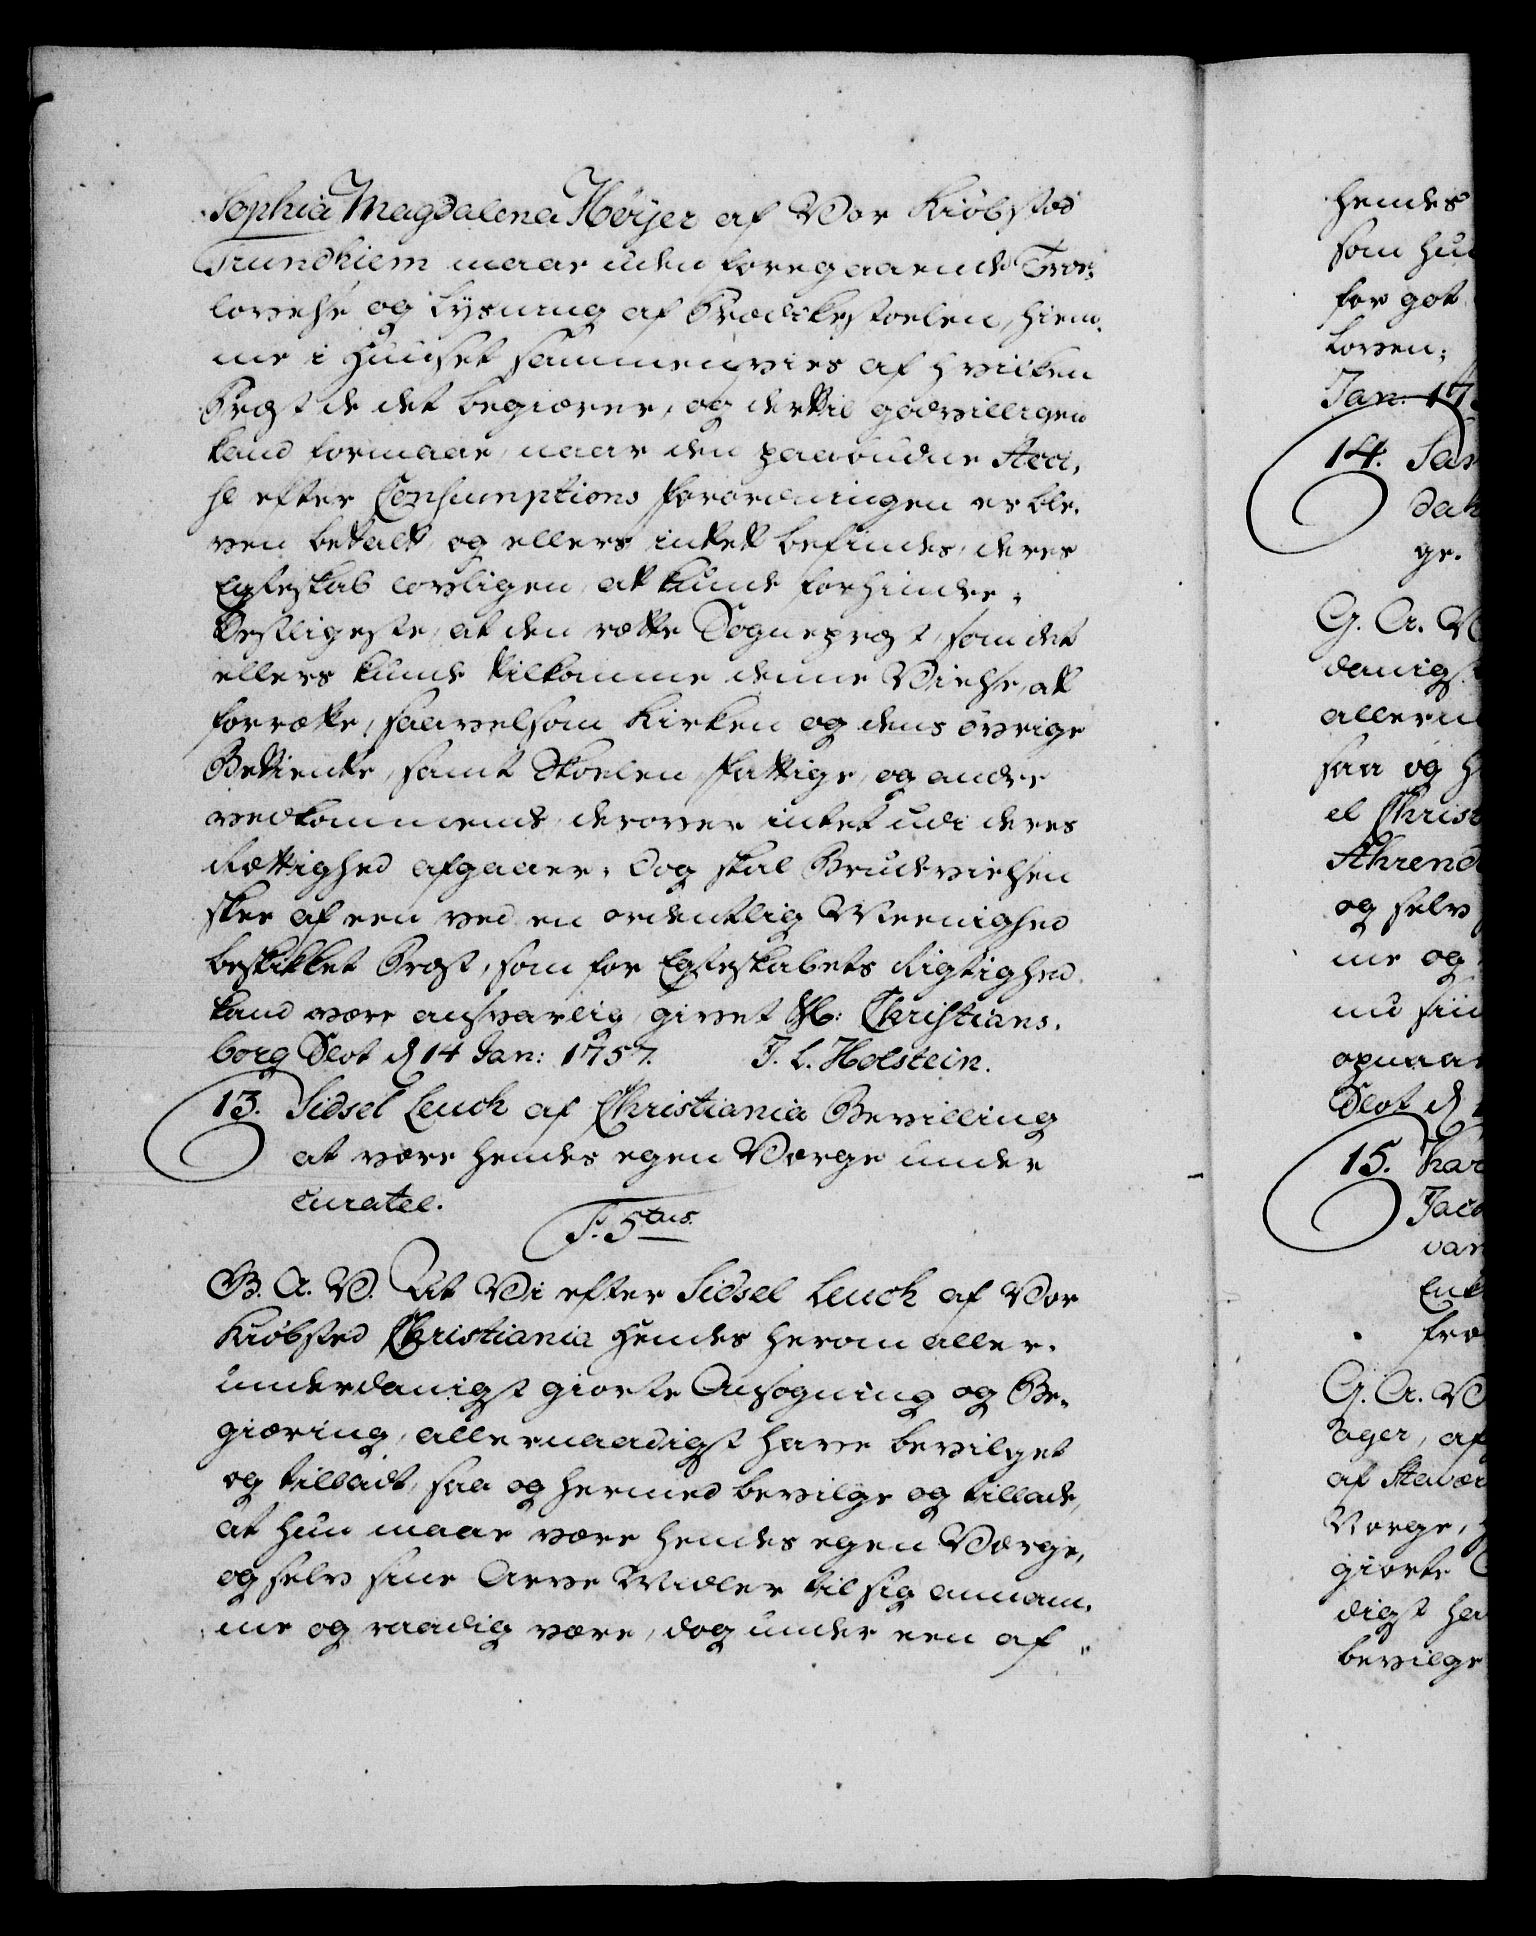 Sophia Magdalena Høyer af Vor Kiøbstad
Trundhiem maae uden foregaaende Troe-
lovelse og Lysning af Prædikestoelen, hiem-
me i Huuset sammenvies af hvilken
Præst de det begiærer, og dertil godvilligen
kand formaae, naar den paabudne Acci-
se efter Consumptions forordningen er ble-
ven betalt, og ellers intet befindes, deres
Egteskab lovligen at kunde forhindre;
Desligeste, at den rette Sognepræst, som det
ellers kunde tilkomme denne Vielse at
forrette, saavelsom Kirken og dens øvrige
Betiente, samt Skoelen, fattige, og andre
vedkommende, derover intet udi deres
Rettighed afgaaer; Dog skal Brudevielsen
skee af een ved en ordentlig Meenighed
beskikket Præst, som for Egteskabets Rigtighed
kand være ansvarlig, givet etc: Christians-
borg Slot d 14 Jan: 1757. J. L. Holstein.
13. Sidsel Leuch af Christiania Bevilling
at være hendes egen Værge under
Curatel.
F. 5tus.
G. A. V. At Vi efter Sidsel Leuch af Vor
Kiøbsted Christiania hendes herom aller-
underdanigst giorte Ansøgning og Be-
giæring, allernaadigst have bevilget
og tilladt, saa og hermed bevilge og tillade,
at hun maae være hendes egen Værge,
og selv sine Arve Midler til sig annam-
me og raadig være, dog under een af
hendes
som hu
for got
Loven;
Jan: 17
14. 
ge.
G. A. V
danigst
allern
saa og h
el Christ
Ahrend
og selv
me og
nu sii
opnaa
Slot d
15. Kar
Jaco
var
Enk
fra
G. A. V
ager, af
af Stavær
Værge, h
giorte
digst ha
bevilge